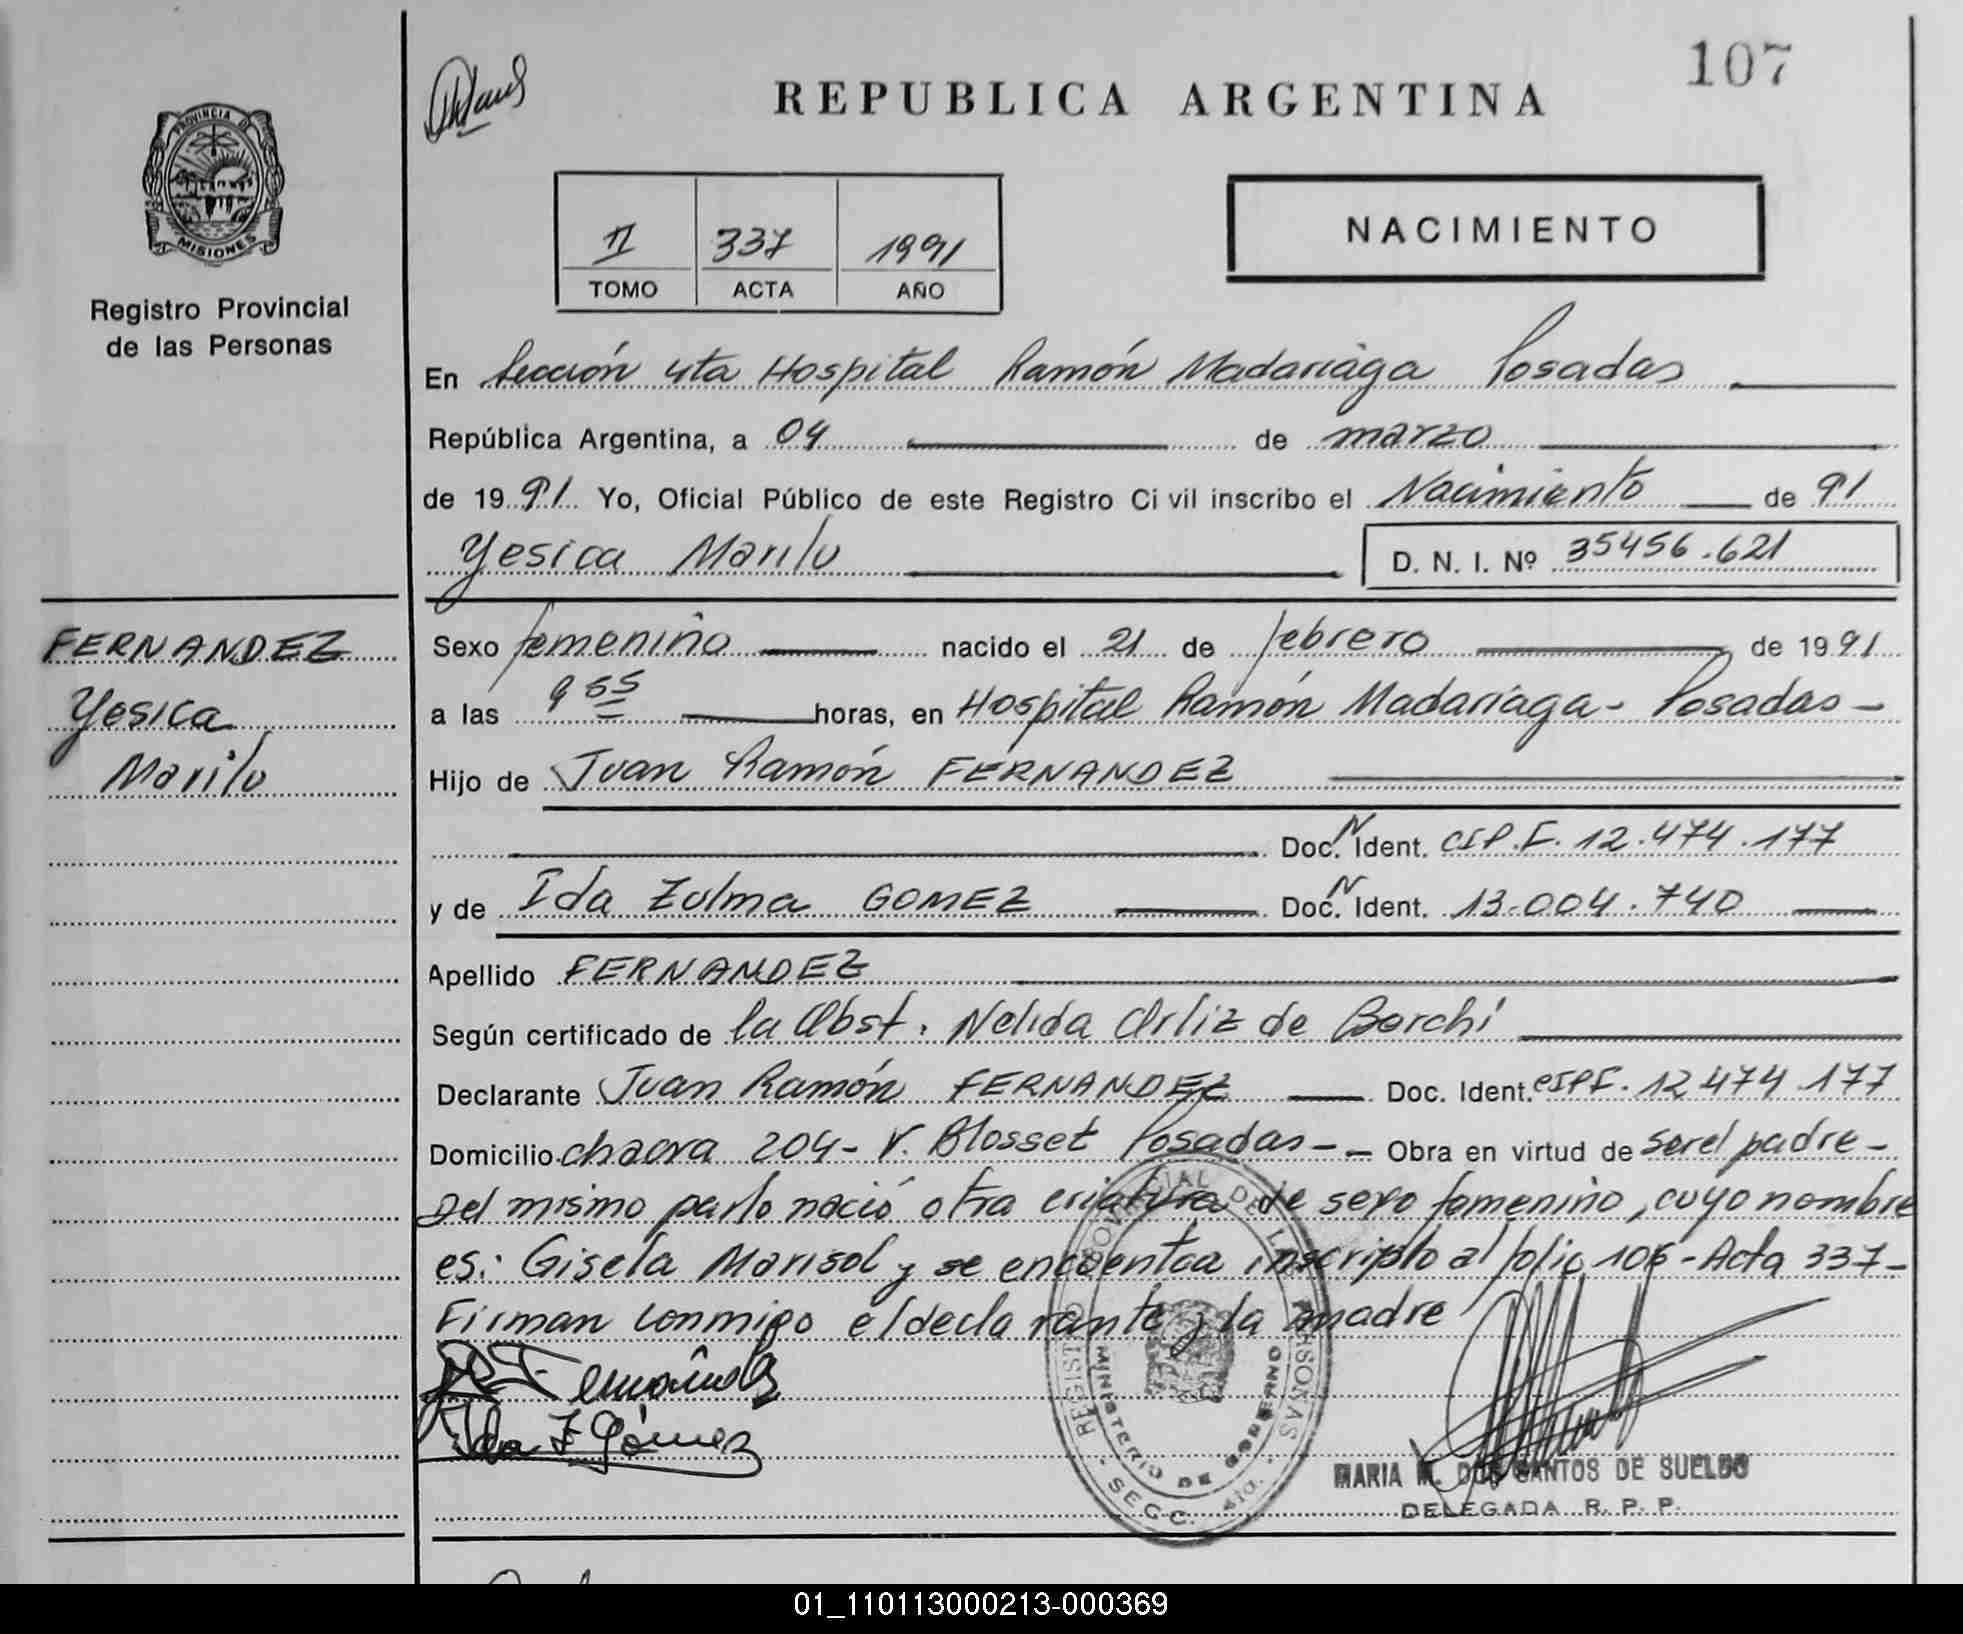 107
REPUBLICA ARGENTINA
PROVINCIA DE
MISIONES
Registro Provincial
de las Personas
II 337 1991
TOMO ACTA AÑO
NACIMIENTO
En Sección 4ta Hospital Ramón Madariaga Posadas
República Argentina, a 04 de marzo
de 1991 Yo, Oficial Público de este Registro Civil inscribo el Nacimiento de 91
Yesica Marilu D. N. I. Nº 35456.621
FERNANDEZ
Yesica
Marilu
Sexo femenino nacido el 21 de febrero de 1991
a las 9 55 horas, en Hospital Ramón Madariaga - Posadas -
Hijo de Juan Ramón FERNANDEZ
Doc. N Ident. CIP.F. 12.474.177
y de Ida Zulma GOMEZ Doc. N Ident. 13.004.740
Apellido FERNANDEZ
Según certificado de la Obst. Nelida Ortiz de Borchi
Declarante Juan Ramón FERNANDEZ Doc. Ident. CIPF. 12474.177
Domicilio chacra 204 - V. Blosset Posadas - Obra en virtud de ser el padre -
Del mismo parto nació otra criatura de sexo femenino, cuyo nombre
es: Gisela Marisol y se encuentra inscripto al folio 106 - Acta 337 -
Firman conmigo el declarante y la madre
Ida Z Gómez
REGISTRO PROVINCIAL DE LAS PERSONAS
MINISTERIO DE GOBIERNO
- SECC. 4ta. -
MARIA M. DOS SANTOS DE SUELDO
DELEGADA R. P. P.
01_110113000213-000369